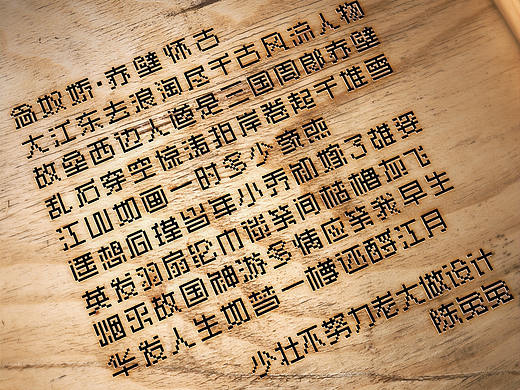 念奴娇·赤壁怀古
大江东去浪淘尽千古风流人物
故垒西边人道是三国周郎赤壁
乱石穿空惊涛拍岸卷起千堆雪
江山如画一时多少豪杰
遥想公瑾当年小乔初嫁了雄姿
英发羽扇纶巾谈笑间樯橹灰飞
烟灭故国神游多情应笑我早生
华发人生如梦一樽还酹江月
少壮不努力老大做设计
陈